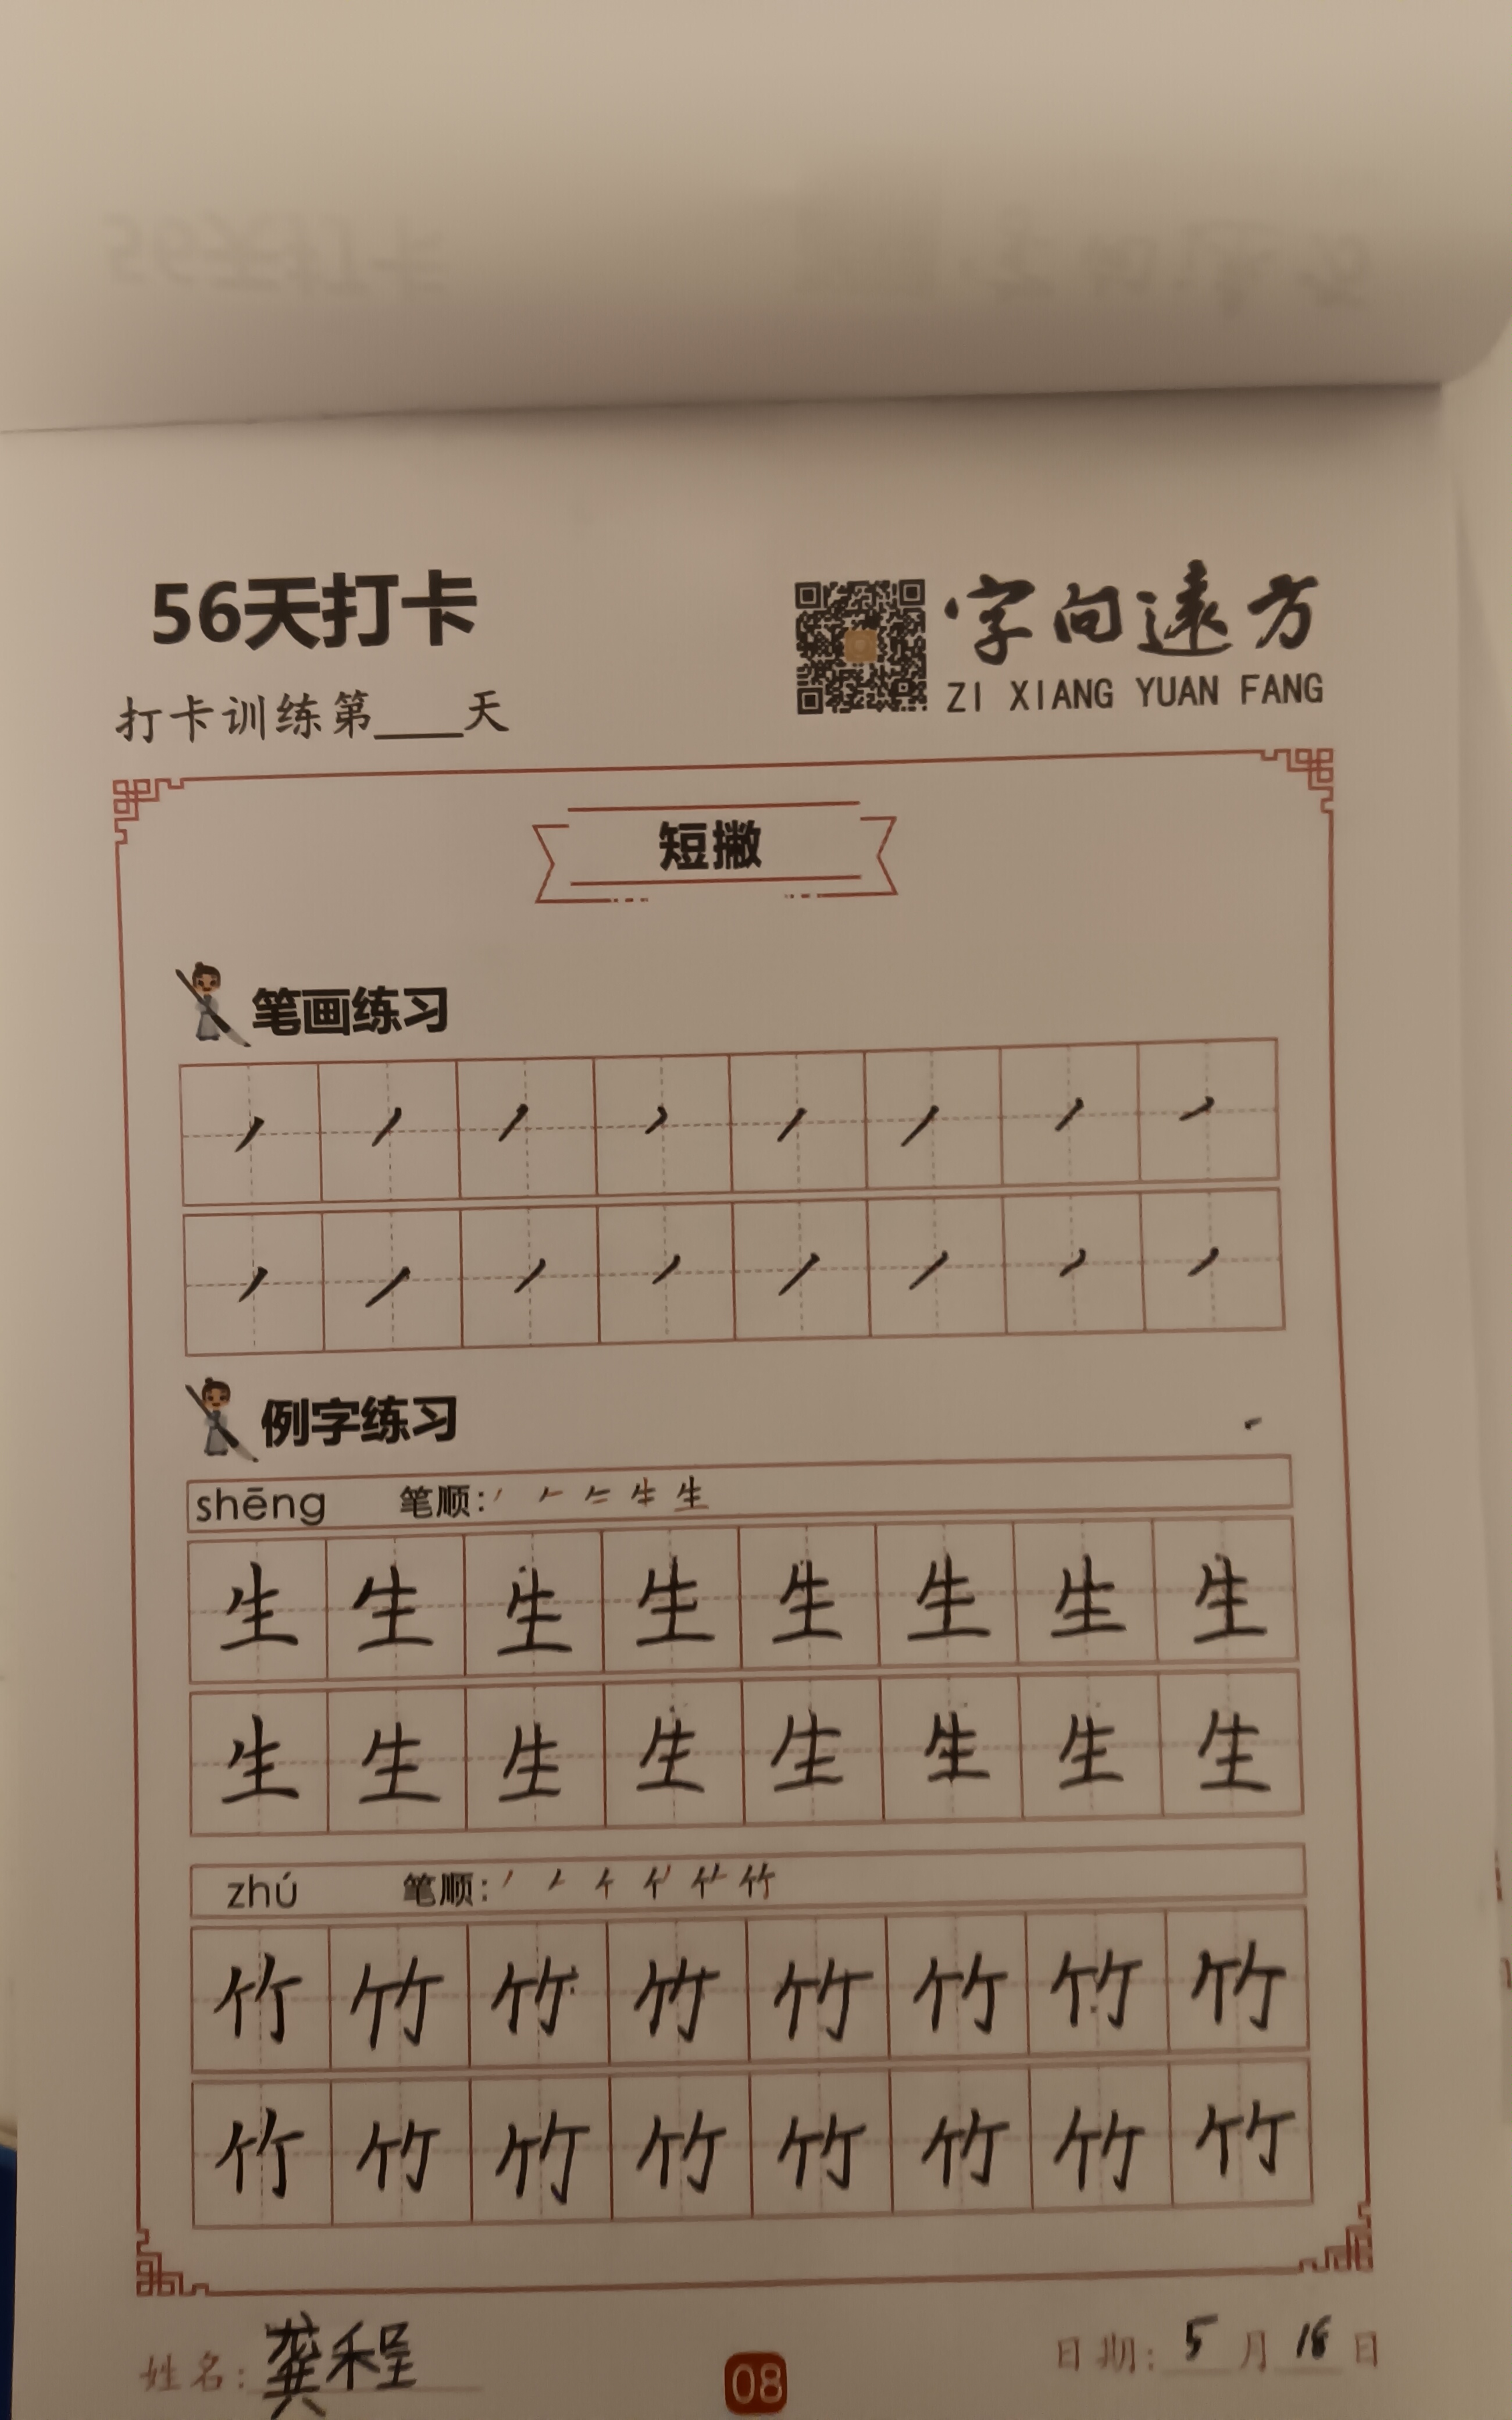 56天打卡
字向遠方
ZI XIANG YUAN FANG
打卡训练第____天
短撇
笔画练习
丿 丿 丿 丿 丿 丿 丿 丿
丿 丿 丿 丿 丿 丿 丿 丿
例字练习
shēng 笔顺: 生
生 生 生 生 生 生 生 生
生 生 生 生 生 生 生 生
zhú 笔顺: 竹
竹 竹 竹 竹 竹 竹 竹 竹
竹 竹 竹 竹 竹 竹 竹 竹
姓名: 龚程
08
日期: 5月18日